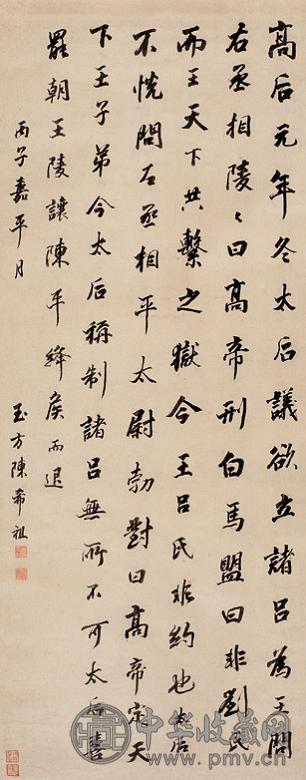 高后元年冬太后議欲立諸呂為王問
右丞相陵〻曰高帝刑白馬盟曰非劉氏
而王天下共繫之獄今王呂氏非約也太后
不悅問左丞相平太尉勃對曰高帝定天
下王子弟今太后稱制諸呂無所不可太后喜
罷朝王陵讓陳平絳侯而退
丙子嘉平月
玉方陳希祖
中华收藏网
www.pmv.cn